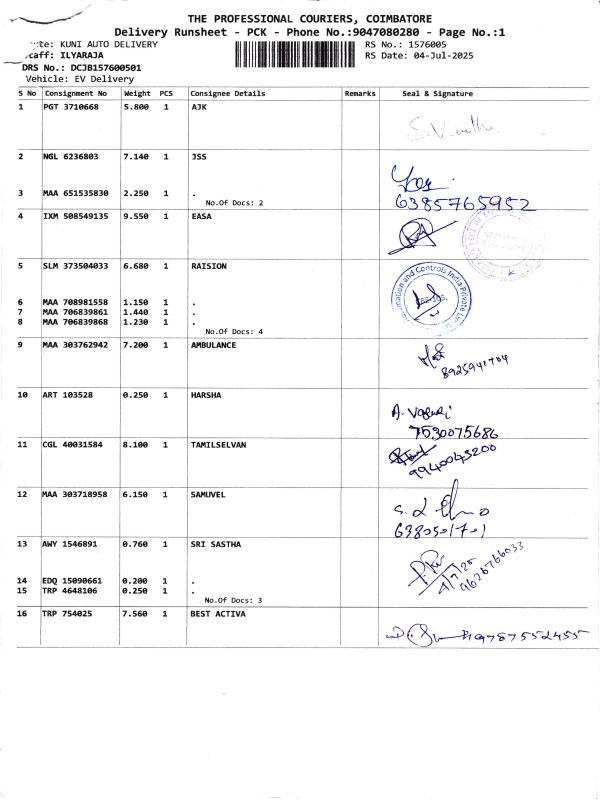 THE PROFESSIONAL COURIERS, COIMBATORE
Delivery Runsheet - PCK - Phone No.:9047080280 - Page No.:1
KUNI AUTO DELIVERY RS No.: 1576005
ILYARAJA RS Date: 04-Jul-2025
DRS No.: DCJB157600501
Vehicle: EV Delivery
S No Consignment No Weight PCS Consignee Details Remarks Seal & Signature
1 PGT 3710668 5.800 1 AJK
2 NGL 6236803 7.140 1 JSS
3 MAA 651535830 2.250 1 .
No.Of Docs: 2 6385765952
4 IXM 508549135 9.550 1 EASA
5 SLM 373504033 6.680 1 RAISION
and Controls India Private
6 MAA 708981558 1.150 1 .
7 MAA 706839861 1.440 1 .
8 MAA 706839868 1.230 1 .
No.Of Docs: 4
9 MAA 303762942 7.200 1 AMBULANCE
8925941704
10 ART 103528 0.250 1 HARSHA
7530075686
11 CGL 40031584 8.100 1 TAMILSELVAN
9940043200
12 MAA 303718958 6.150 1 SAMUVEL
13 AWY 1546891 0.760 1 SRI SASTHA
4/7/25
9626766033
14 EDQ 15090661 0.200 1 .
15 TRP 4648106 0.250 1 .
No.Of Docs: 3
16 TRP 754025 7.560 1 BEST ACTIVA
9787552455